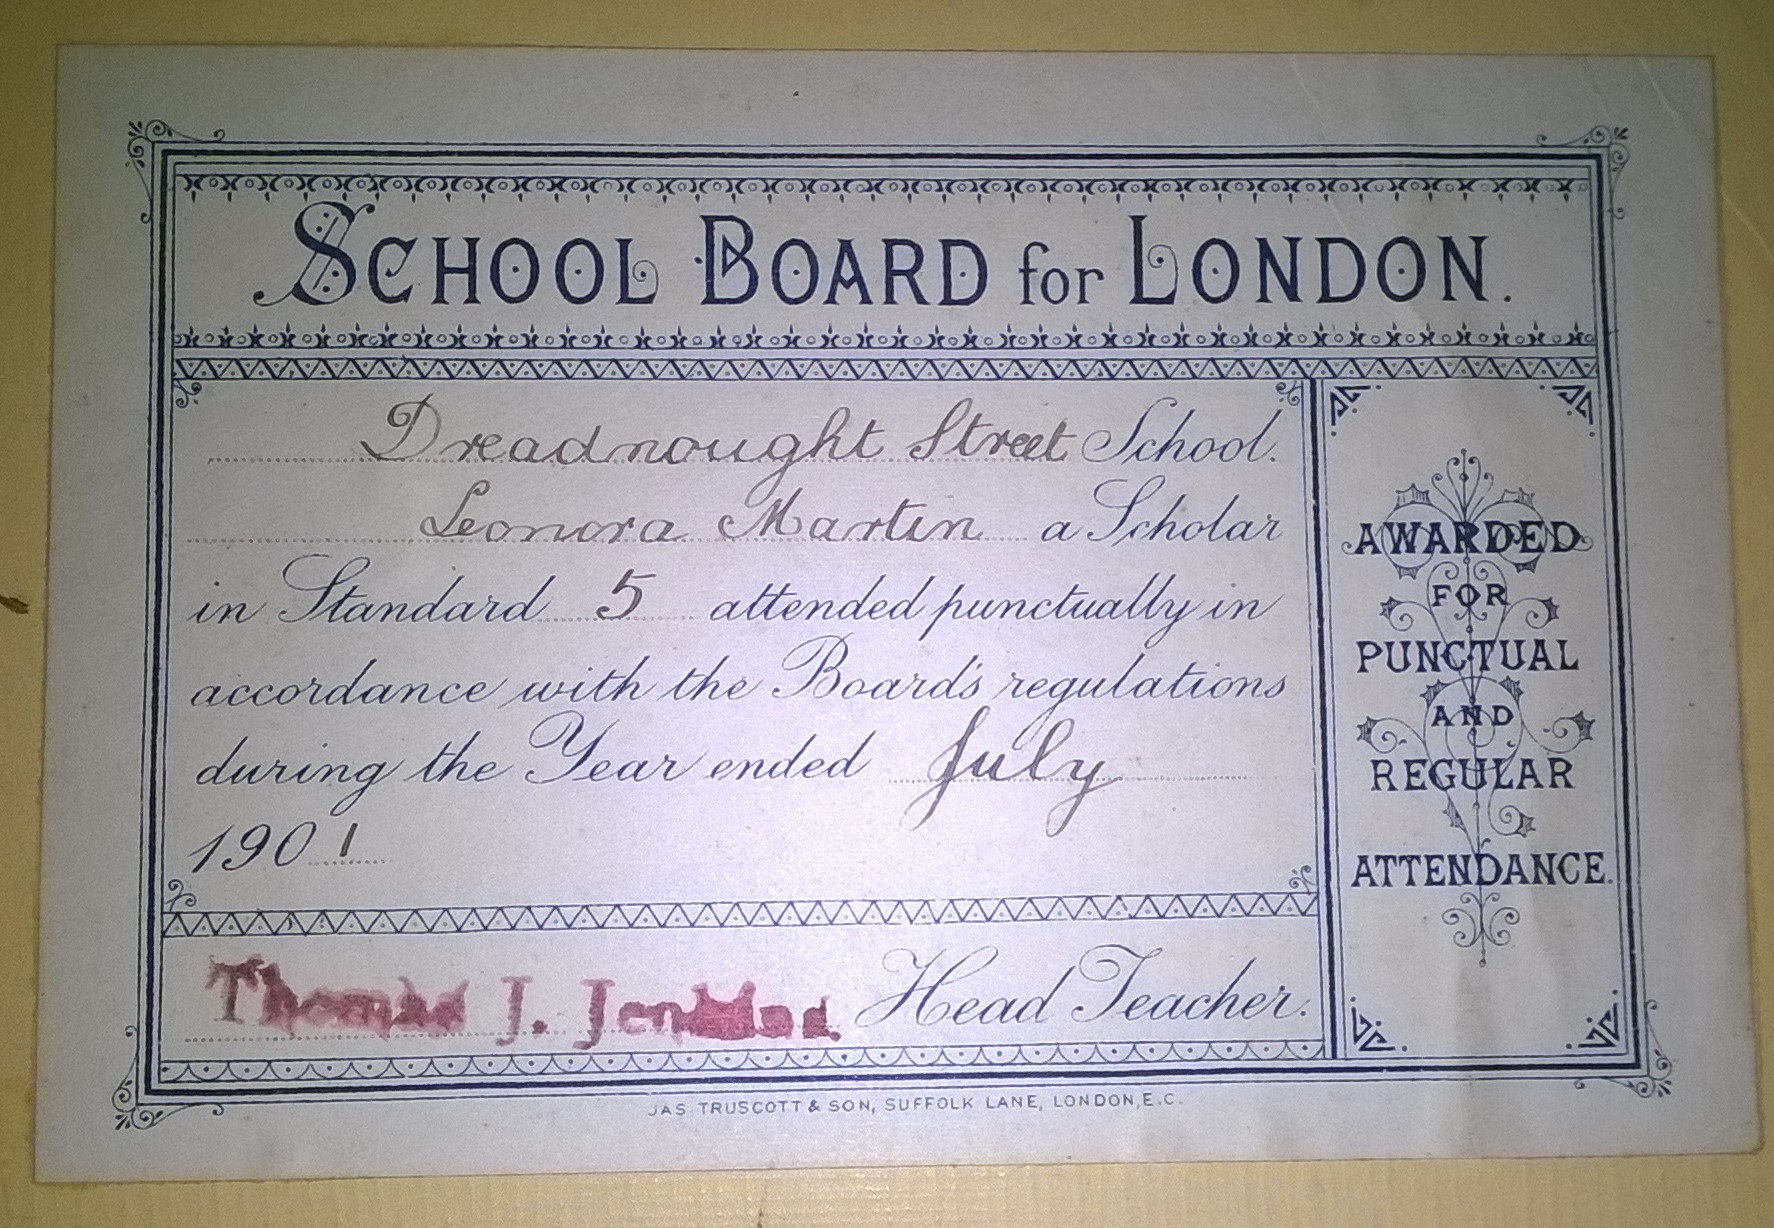 SCHOOL BOARD for LONDON.
Dreadnought Street School.
Leonora Martin a Scholar
in Standard 5 attended punctually in
accordance with the Board's regulations
during the Year ended July
1901
Thomas J. Jenkins Head Teacher.
AWARDED
FOR
PUNCTUAL
AND
REGULAR
ATTENDANCE.
JAS TRUSCOTT & SON, SUFFOLK LANE, LONDON, E.C.